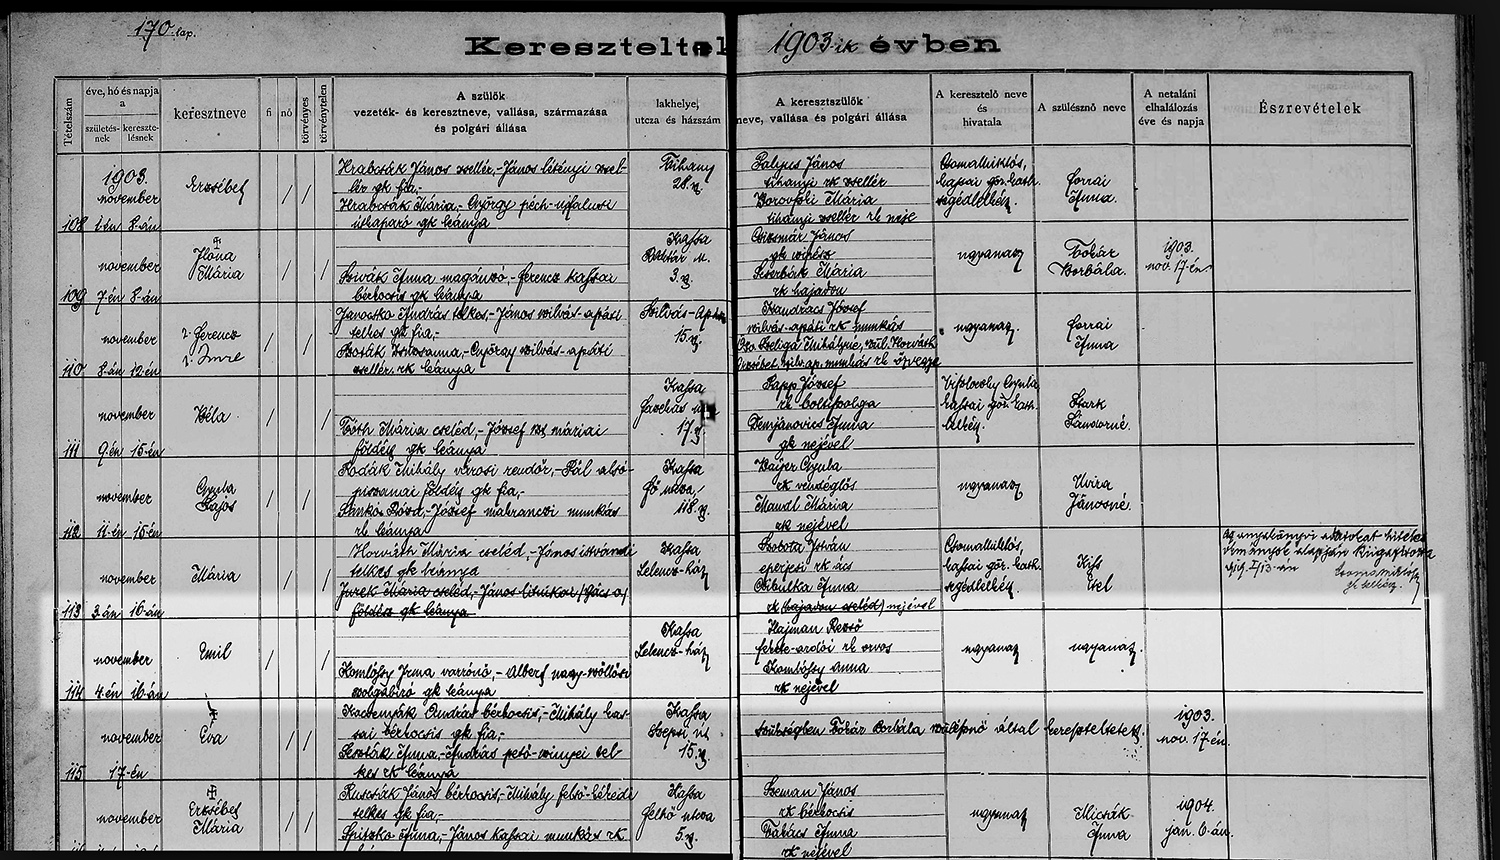 170 lap.
Kereszteltek 1903-ik évben
Tételszám
éve, hó és napja
a
születés-
nek
kereszte-
lésnek
keresztneve
fi
nő
törvényes
törvénytelen
A szülők
vezeték- és keresztneve, vallása, származása
és polgári állása
lakhelye,
utcza és házszám
A keresztszülők
neve, vallása és polgári állása
A keresztelő neve
és
hivatala
A szülésznő neve
A netaláni
elhalálozás
éve és napja
Észrevételek
1903.
november
108 1-én 8-án
Erzsébet
Hrabcsák János zsellér,- János
lér gk fia,-
Hrabcsák Mária,- György pech-ujfalusi
útkaparó gk leánya
Tihany
28. sz.
János
tihanyi rk zsellér
Mária
tihanyi zsellér rk neje
Csoma Miklós,
kassai gör. kath.
segédlelkész.
Forrai
Anna.
november
109 7-én 8-án
Ilona
Mária
Anna magánzó,- Ferencz kassai
bérkocsis gk leánya
Kassa
Raktár u.
3. sz.
Csizmár János
gk
Mária
rk hajadon
ugyanaz
Tokár
Borbála.
1903.
nov. 17-én.
november
110 8-án 12-én
2. Ferencz
1. Imre
Janocsko András telkes,- János szilvás-apáti
telkes gk fia,-
Zsuzsanna,- György szilvás-apáti
zsellér rk leánya
Szilvás-Apáti
15. sz.
József
szilvás-apáti rk munkás
Mihályné, szül. Horváth
Erzsébet, szilv. ap. munkás rk özvegye
ugyanaz.
Forrai
Anna
november
111 9-én 15-én
Béla
Tóth Mária cseléd,- József
földész gk leánya
Kassa
17. sz.
Papp József
rk boltiszolga
Demjanovics Anna
gk nejével
Gyula
kassai gör. kath.
lelkész.
Stark
Sándorné.
november
112 11-én 15-én
Gyula
Lajos
Rodák Mihály városi rendőr,- Pál alsó-
földész gk fia,-
József munkás
rk leánya
Kassa
Fő utcza,
118. sz.
Bayer Gyula
rk vendéglős
Mandl Mária
rk nejével
ugyanaz
Uvira
Jánosné.
november
113 3-án 16-án
Mária
Horváth Mária cseléd,- János
telkes gk leánya
Jurek Mária cseléd,- János
földész gk leánya
Kassa
Lelencz-ház
Szobota István
eperjesi rk ács
Cibulka Anna
rk hajadon cseléd) nejével
Csoma Miklós,
kassai gör. kath.
segédlelkész.
Kiss
Etel
Az anyakönyvi adatokat hiteles
alapján kiigazította
1919. I/13-án
gk lelkész.
november
114 4-én 16-án
Emil
Komlóssy Irma varrónő,- Albert nagy-szőllősi
szolgabíró gk leánya
Kassa
Lelencz-ház
Hajman Rezső
rk orvos
Komlóssy Anna
rk nejével
ugyanaz
ugyanaz.
november
115 17-én
Éva
András bérkocsis,- Mihály kas-
sai bérkocsis gk fia,-
Anna,- András pető-szinyei tel-
kes rk leánya
Kassa
Szepsi út
15. sz.
szükségben Tokár Borbála szülésznő által kereszteltetett.
1903.
nov. 17-én.
november
Erzsébet
Mária
Ruscsák János bérkocsis,- Mihály felső-
telkes gk fia,-
Anna,- János kassai munkás rk
Kassa
utcza
5. sz.
Szeman János
rk bérkocsis
Takács Anna
rk nejével
ugyanaz
Micsák
Anna
1904.
jan. 6-án.